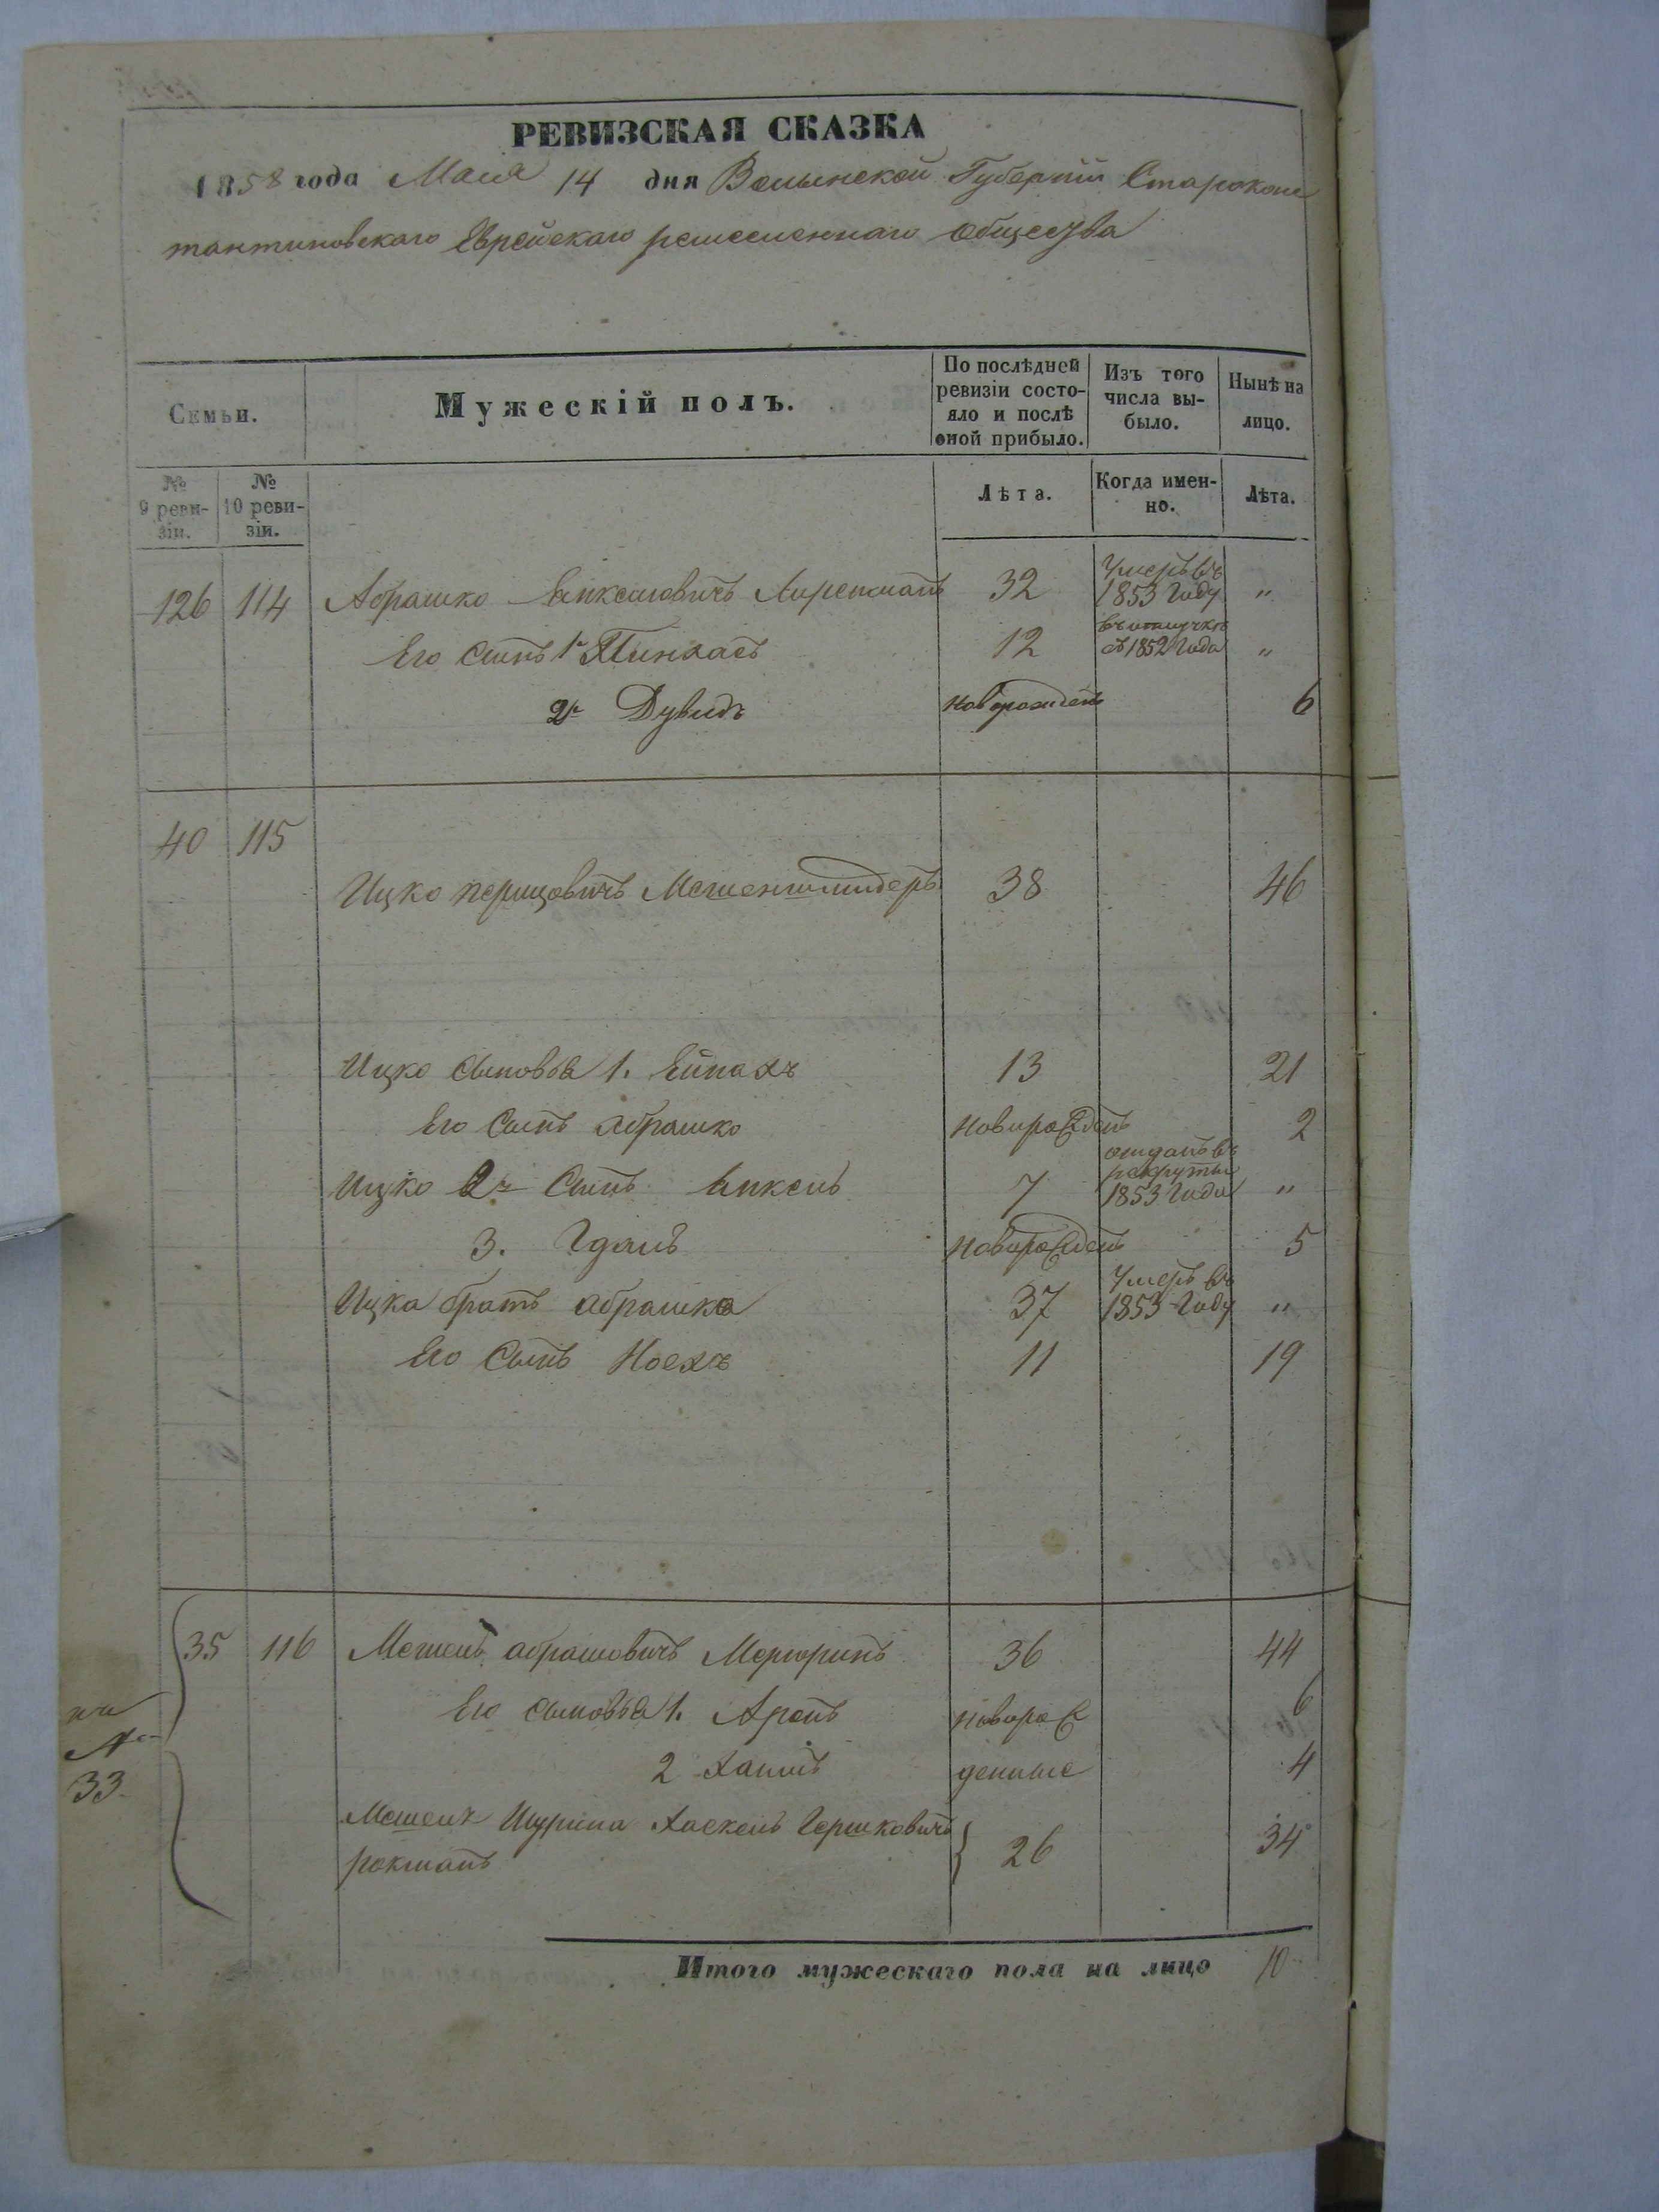 РЕВИЗСКАЯ СКАЗКА
1858 года Мая 14 дня Волынской Губерніи Старокон
тантиновскаго Еврейскаго ремесленнаго общества
Семьи.
Мужескій полъ.
По послѣдней ревизіи состо-
яло и послѣ
оной прибыло.
Изъ того
числа вы-
было.
Нынѣ на
лицо.
№
9 реви-
зіи.
№
10 реви-
зіи.
Лѣта.
Когда имен-
но.
Лѣта.
126 114 Абрашко Анкелович 32 Умеръ въ 1853 Году "
Его Сынъ 1й Пинхасъ 12 въ отлучкѣ съ 1852 Года "
2й Дувидъ новорожденъ 6
40 115
Ицко перцовичъ 38 46
Ицко сыновья 1. 13 21
Его Сынъ абрашко новорожденъ 2
Ицко 2й Сынъ Анкель 7 отданъ въ рекруты 1853 Года "
3. новорожденъ 5
Ицка братъ абрашко 37 Умеръ въ 1853 Году "
Его Сынъ Ноехъ 11 19
на
№
33
35 116 абрашовичъ 36 44
Его сыновья 1. Аронъ новорож 6
2 Хаимъ денные 4
Шурина Хаскель Гершковичъ
рокманъ 26 34
Итого мужескаго пола на лицо 10